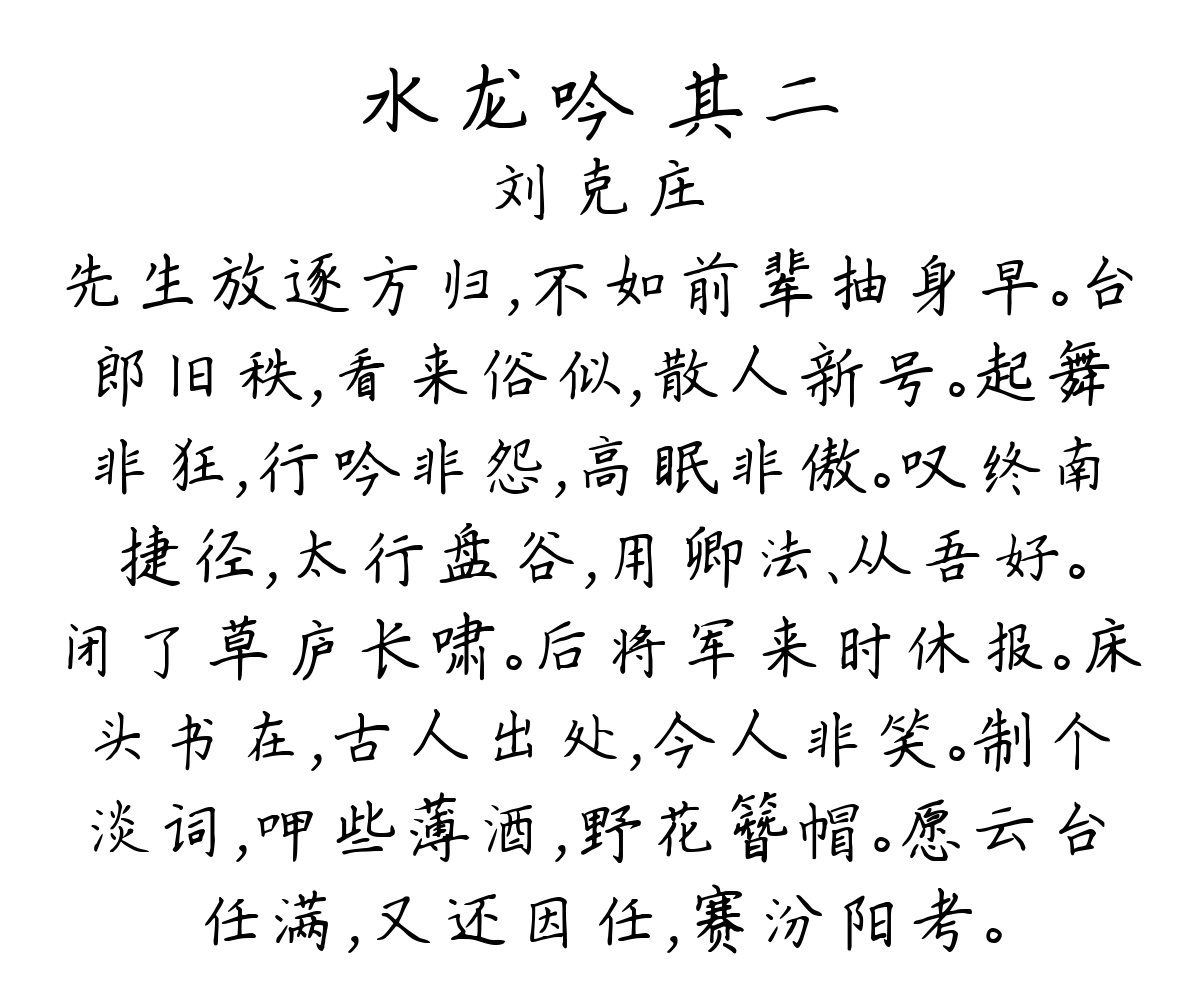 水龙吟 其二
刘克庄
先生放逐方归,不如前辈抽身早。台
郎旧秩,看来俗似,散人新号。起舞
非狂,行吟非怨,高眠非傲。叹终南
捷径,太行盘谷,用卿法、从吾好。
闭了草庐长啸。后将军来时休报。床
头书在,古人出处,今人非笑。制个
淡词,呷些薄酒,野花簪帽。愿云台
任满,又还因任,赛汾阳考。